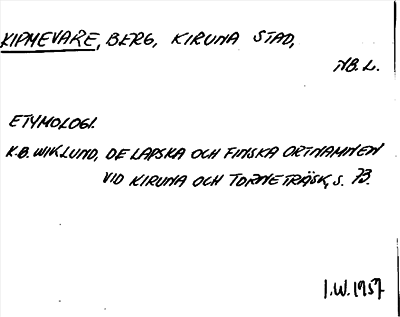 KIPMEVARE, BERG, KIRUNA STAD,
NB. L.
ETYMOLOGI.
K.B. WIKLUND, DE LAPSKA OCH FINSKA ORTNAMNEN
VID KIRUNA OCH TORNETRÄSK, S. 73.
I.W. 1957